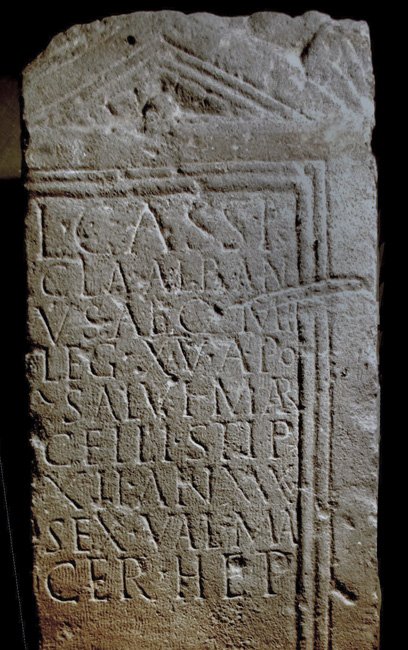 L·CASSI·
CLA·ALBAN
VS·AEC·MIL
LEG·XV·APO
SALVI·MAR
CELLI·STIP
XII·AN·XXXV
SEX·VAL·MA
CER·HEP